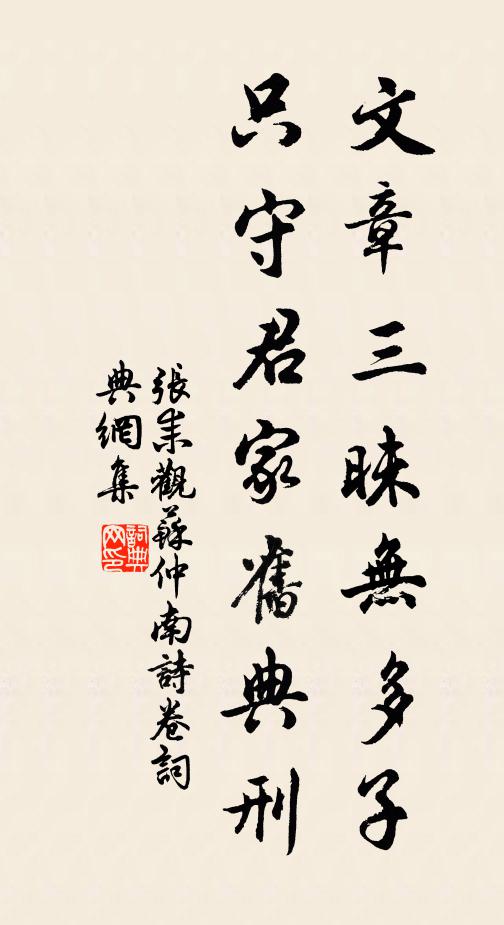 文章三昧無多子
只守君家舊典刑
張耒觀蘇仲南詩卷詞
典網集
詞典
网印